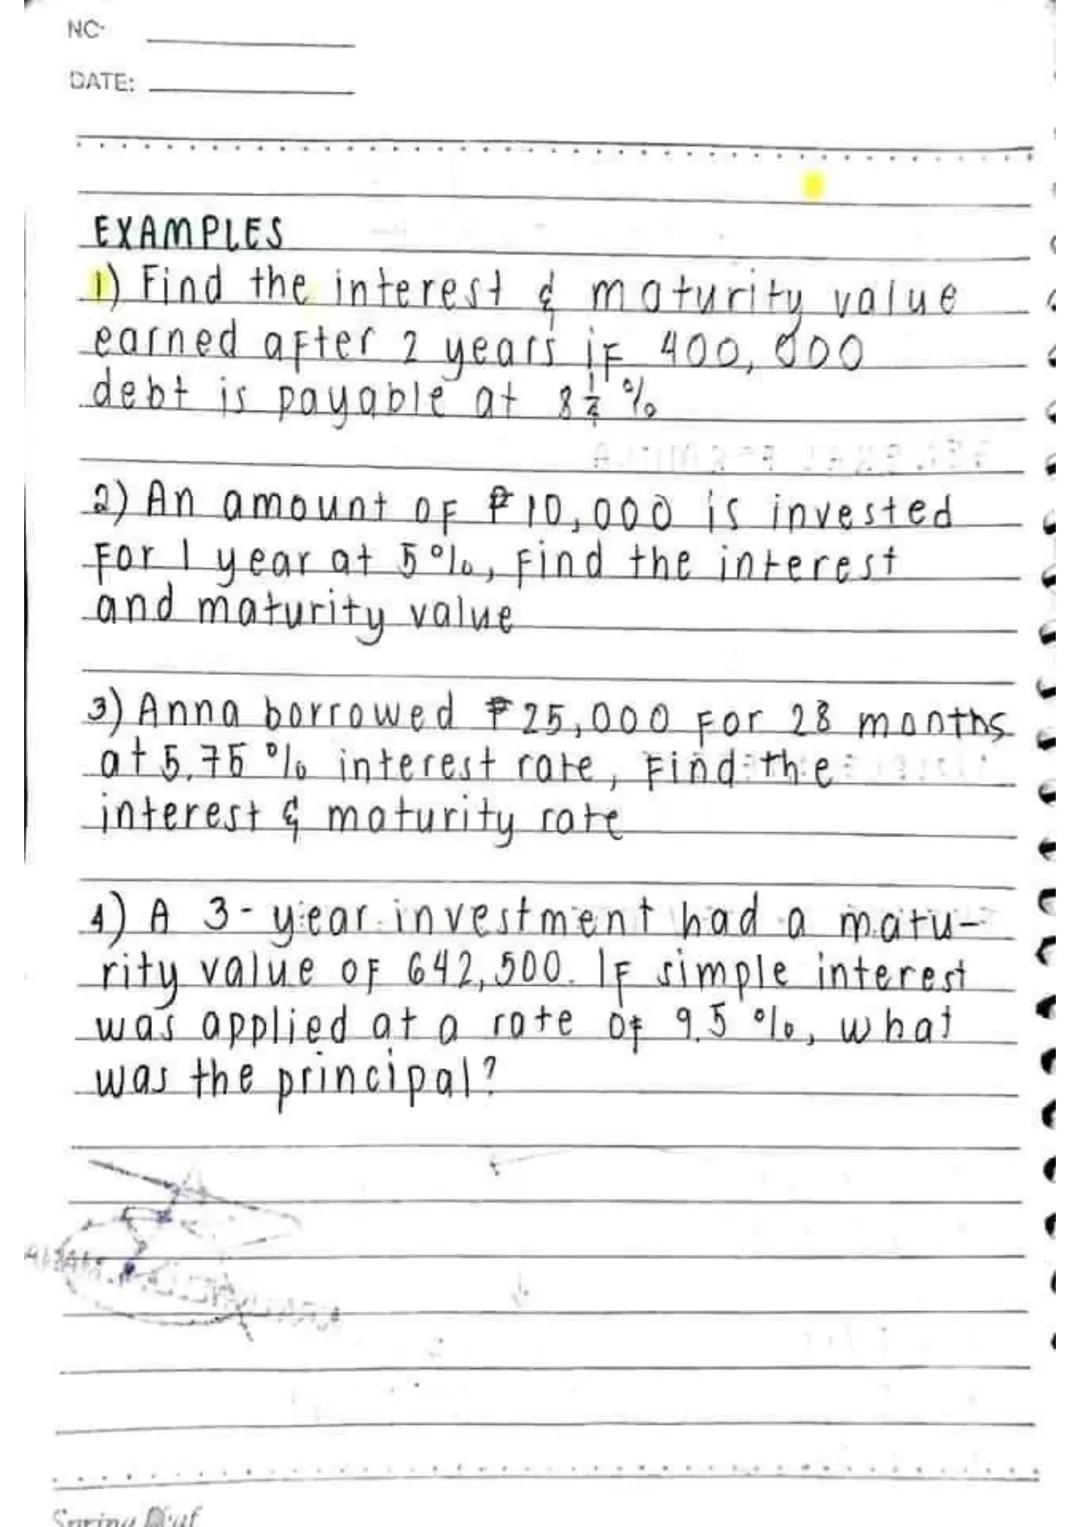 NO
DATE:
EXAMPLES
1) Find the interest & maturity value
earned after 2 years if 400,000
debt is payable at %
2) An amount of ₱10,000 is invested
For 1 year at 5%, Find the interest
and maturity value
3) Anna borrowed ₱25,000 For 28 months
at 5.75 % interest rate, Find the
interest & maturity rate
4) A 3-year investment had a matu-
rity value of 642,500. If simple interest
was applied at a rate of 9.5 %, what
was the principal?
Spring